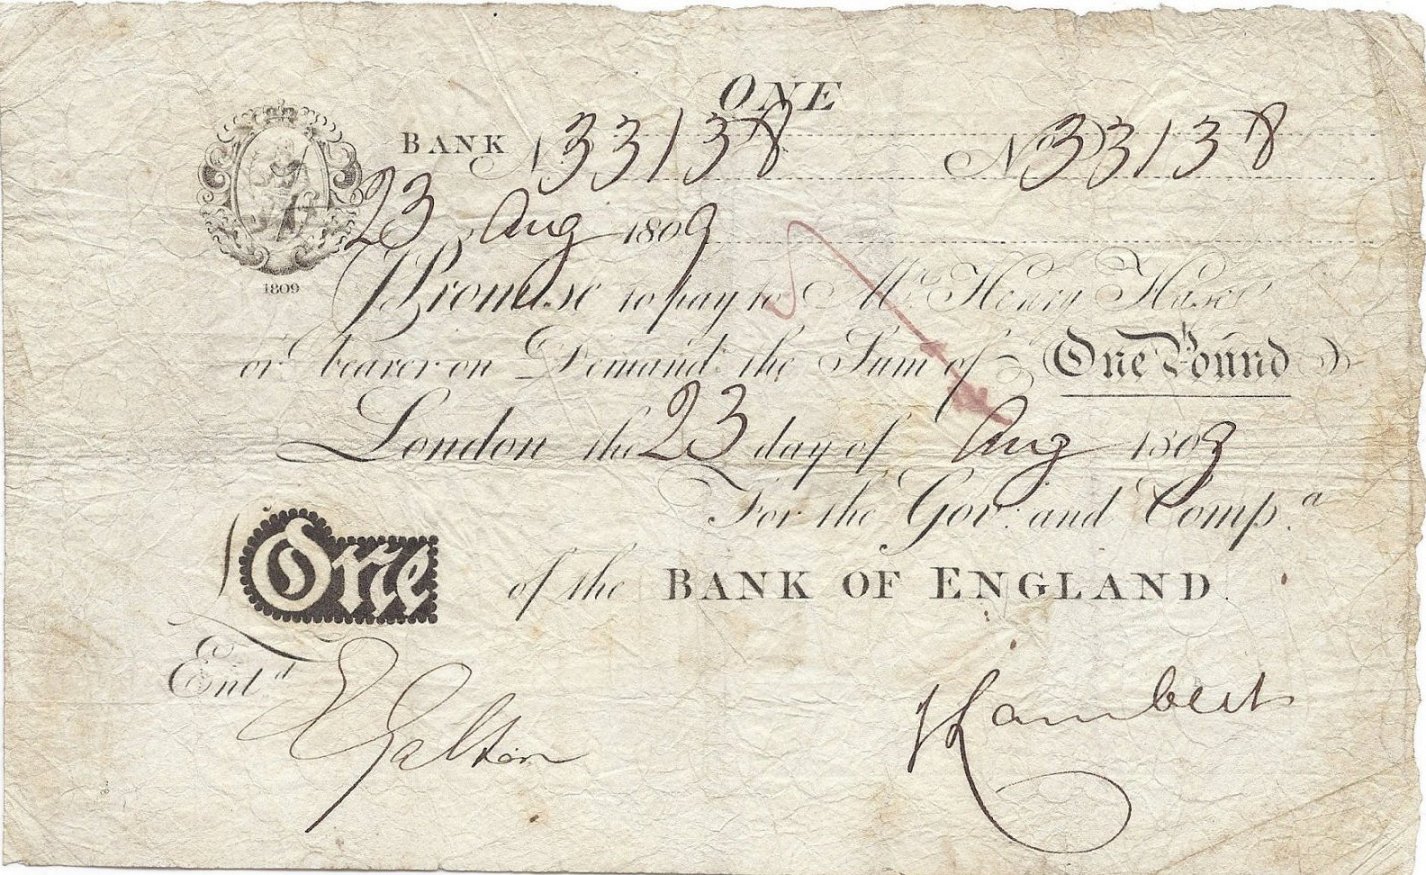 ONE
BANK No 33138 No 33138
23 Aug 1809
1809
I Promise to pay to Mr. Henry Hase
or bearer on Demand the Sum of One Pound
London the 23 day of Aug 1809
For the Gov: and Comp.a
One
of the BANK OF ENGLAND.
Ent.d
Galton
Lambert